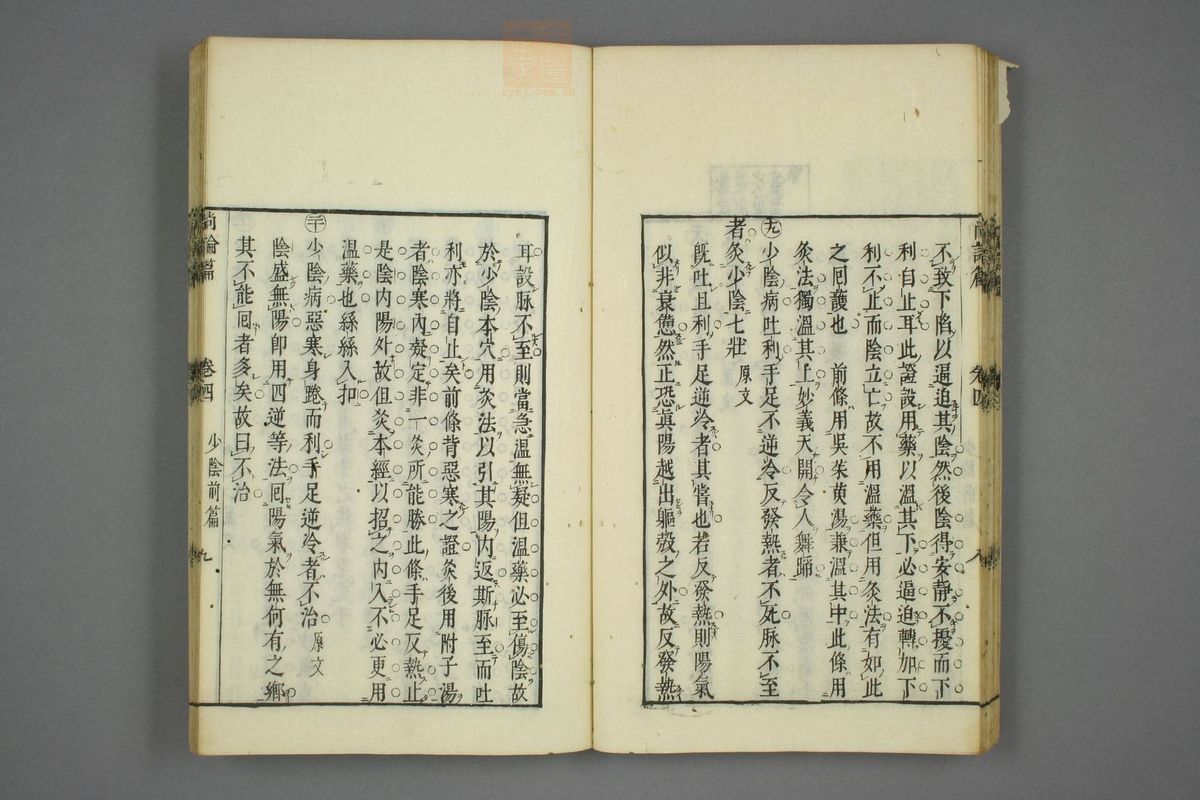 不致下陷以逼迫其陰然後陰得安靜不擾而下
利自止耳此證設用藥以溫其下必逼迫轉加下
利不止而陰立亡故不用溫藥但用灸法有如此
之囘護也　前條用吳茱萸湯兼溫其中此條用
灸法獨溫其上妙義天開令人舞蹄
㊈少陰病吐利手足不逆冷反發熱者不死脉不至
者灸少陰七壯　原文
旣吐且利手足逆冷者其嘗也若反發熱則陽氣
似非衰憊然正恐眞陽越出軀殼之外故反發熱
耳設脉不至則當急溫無疑但溫藥必至傷陰故
於少陰本穴用灸法以引其陽內返斯脉至而吐
利亦將自止矣前條背惡寒之證灸後用附子湯
者陰寒內凝定非一灸所能勝此條手足反熱止
是陰內陽外故但灸本經以招之內入不必更用
溫藥也絲絲入扣
㊁十少陰病惡寒身踡而利手足逆冷者不治　原文
陰盛無陽卽用四逆等法囘陽氣於無何有之鄉
其不能囘者多矣故曰不治
尚論篇　卷四　少陰前篇　九
zysj.com.cn